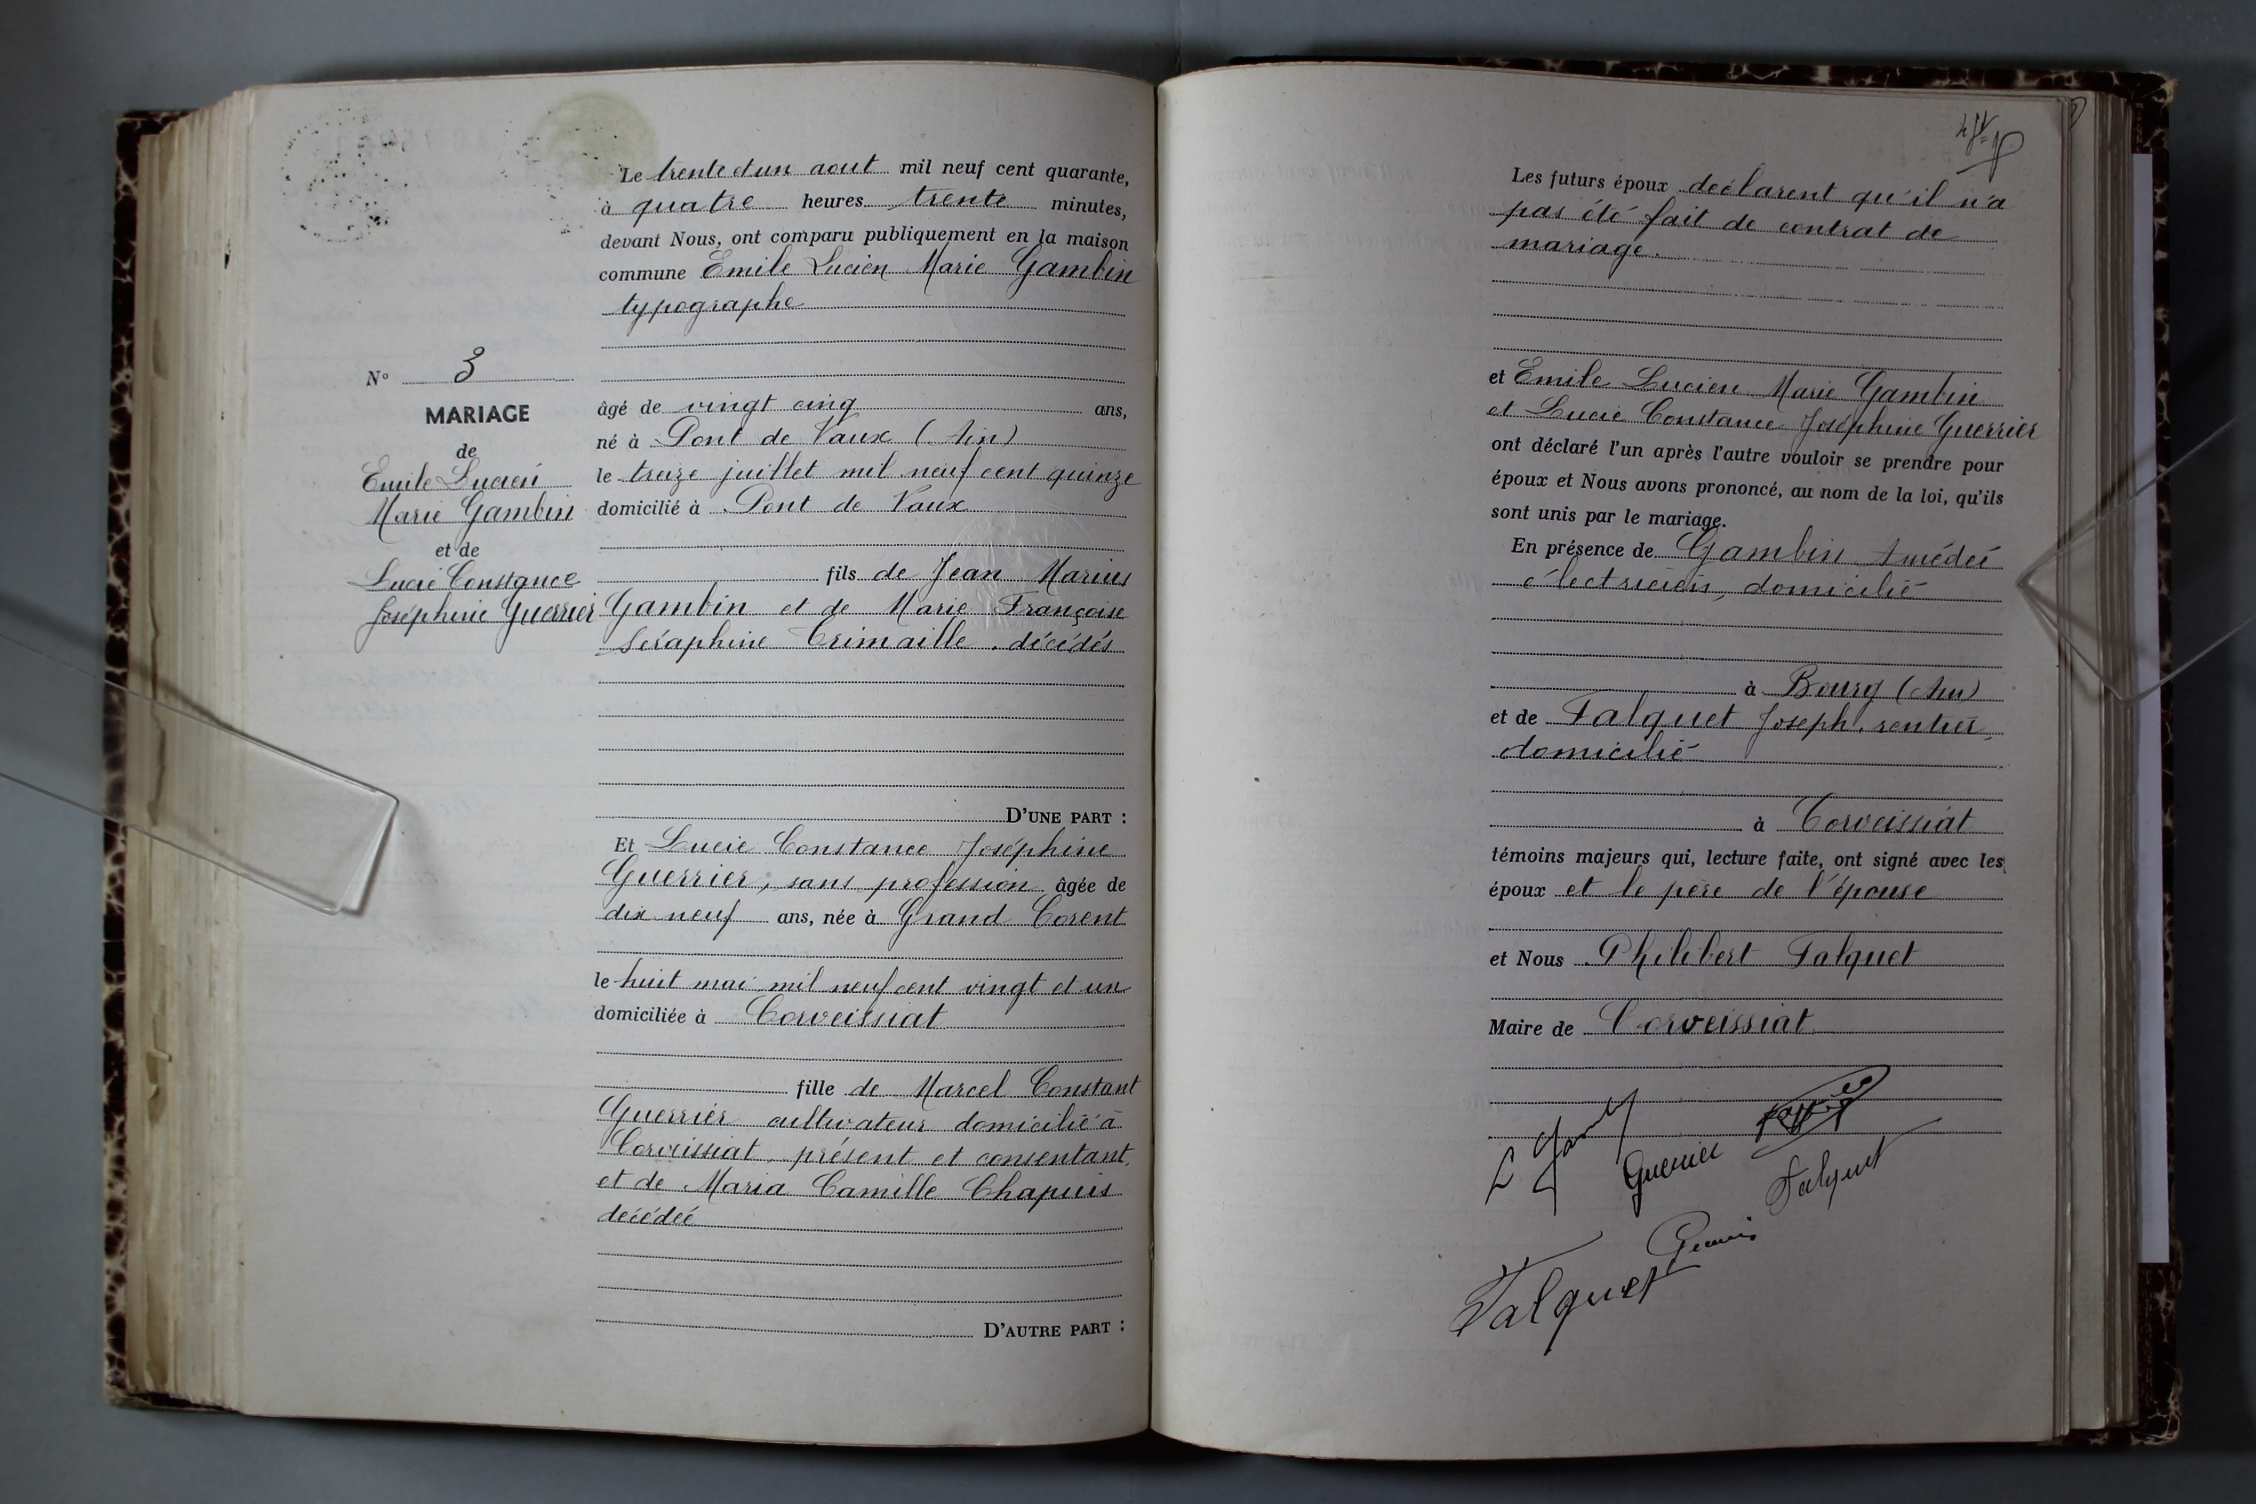 Le trente et un aout mil neuf cent quarante,
à quatre heures trente minutes,
devant Nous, ont comparu publiquement en la maison
commune Emile Lucien Marie Gambin
typographe
N° 3
MARIAGE
de
Emile Lucien
Marie Gambin
et de
Lucie Constance
Joséphine Guerrier
âgé de vingt cinq ans,
né à Pont de Vaux (Ain)
le treize juillet mil neuf cent quinze
domicilié à Pont de Vaux
fils de Jean Marius
Gambin et de Marie Françoise
Séraphine Trimaille. décédés
D'UNE PART :
Et Lucie Constance Joséphine
Guerrier, sans profession âgée de
dix neuf ans, née à Grand Corent
le huit mai mil neuf cent vingt et un
domiciliée à Corveissiat
fille de Marcel Constant
Guerrier cultivateur domicilié à
Corveissiat, présent et consentant,
et de Maria Camille Chapuis
décédée
D'AUTRE PART :
Les futurs époux déclarent qu'il n'a
pas été fait de contrat de
mariage.
et Emile Lucien Marie Gambin
et Lucie Constance Joséphine Guerrier
ont déclaré l'un après l'autre vouloir se prendre pour
époux et Nous avons prononcé, au nom de la loi, qu'ils
sont unis par le mariage.
En présence de Gambin Amédée
électricien, domicilié
à Bourg (Ain)
et de Falquet Joseph. rentier,
domicilié
à Corveissiat
témoins majeurs qui, lecture faite, ont signé avec les
époux et le père de l'épouse
et Nous Philibert Falquet
Maire de Corveissiat
Guerrier
Falquet
Falquet